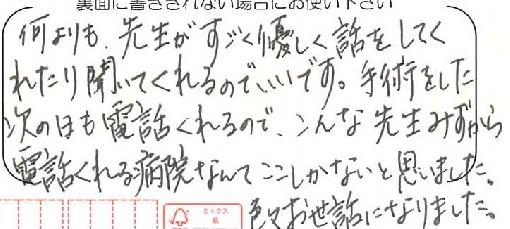 裏面に書ききれない場合にお使い下さい
何よりも、先生がすごく優しく話をしてく
れたり聞いてくれるのでいいです。手術をした
次の日も電話くれるので、こんな先生みずから
電話くれる病院なんてここしかないと思いました。
色々お世話になりました。
ミックス
紙